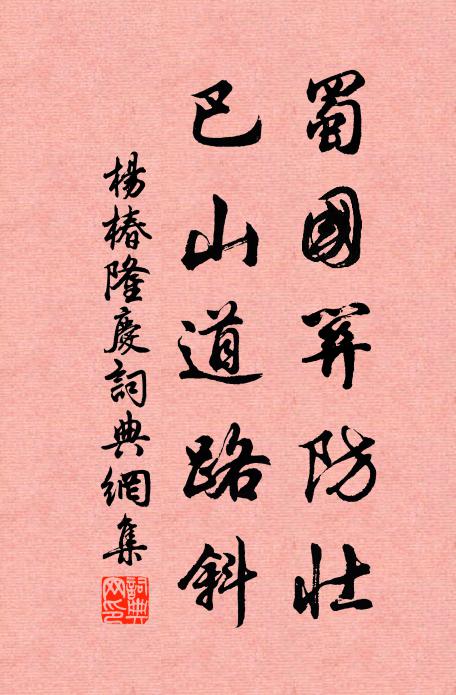 蜀國關防壯
巴山道路斜
楊椿隆慶詞典網集
詞典网印